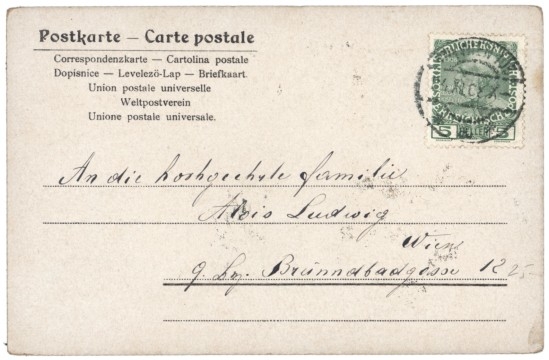 Postkarte — Carte postale
Correspondenzkarte — Cartolina postale
Dopisnice — Levelező-Lap — Briefkaart
Union postale universelle
Weltpostverein
Unione postale universale.
5 5
An die hochgeehrte familie
Alois Ludwig
Wien
9 Bz. Brünndbadgasse 12
25-